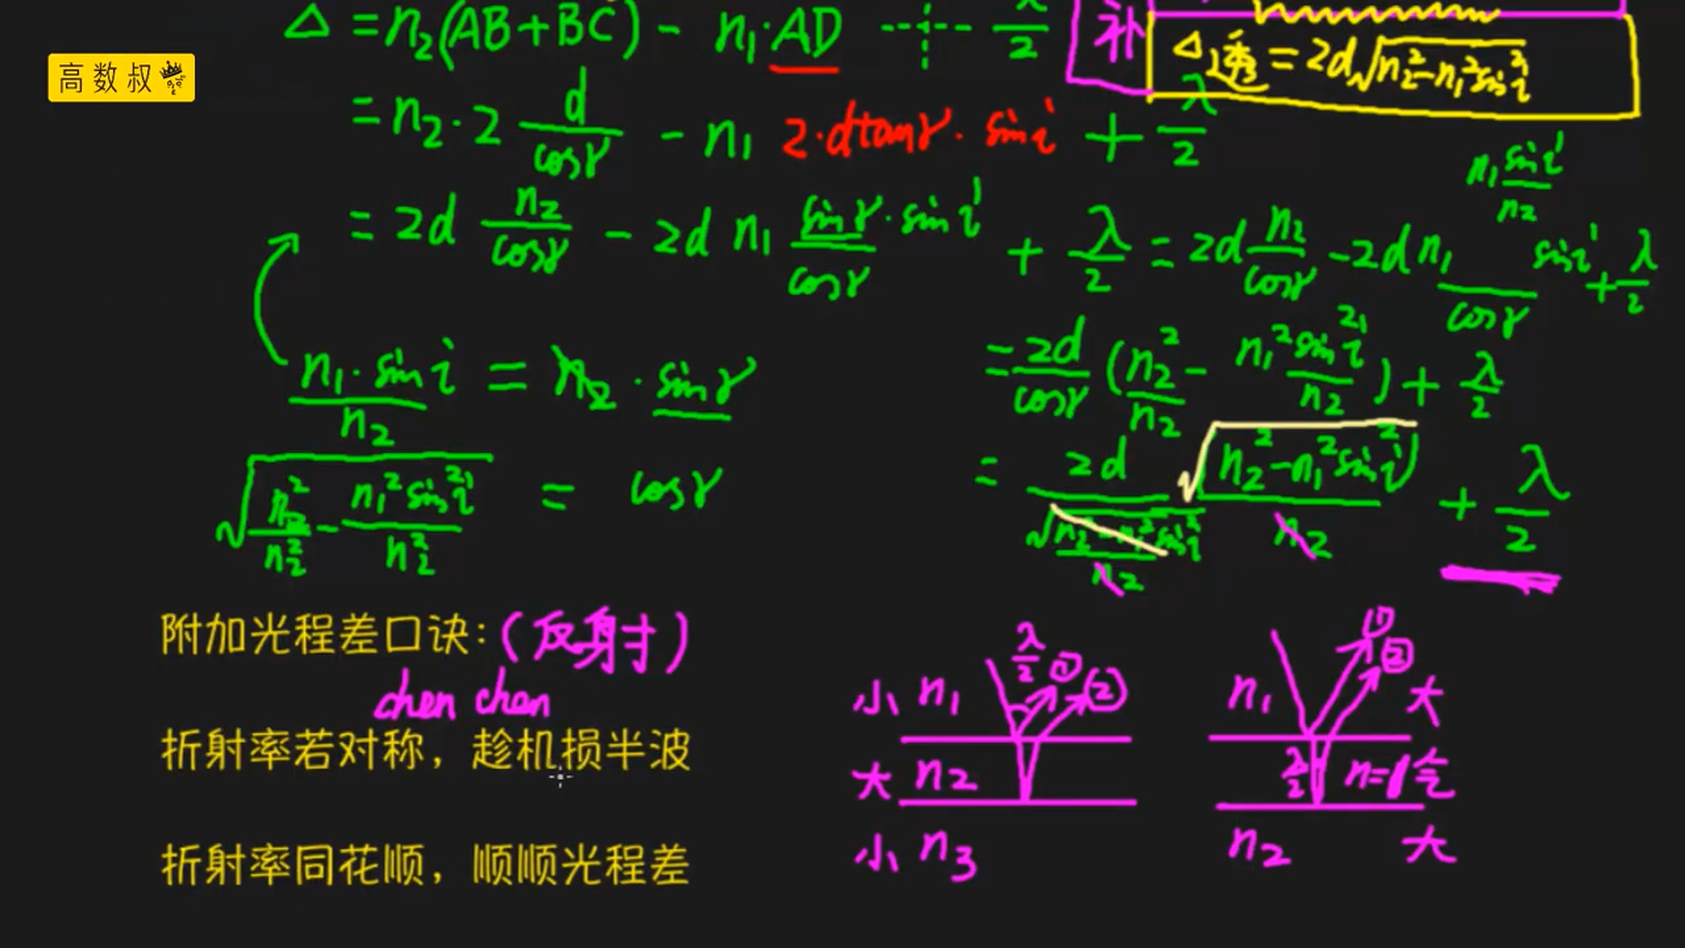 Δ = n₂(AB+BC) - n₁·AD + λ/2
补
Δ透 = 2d√(n₂²-n₁²sin²i)
高数叔
= n₂·2 d/cosγ - n₁ 2·dtanγ·sini + λ/2
n₁sini/n₂
= 2d n₂/cosγ - 2d n₁ sinγ·sini/cosγ + λ/2 = 2d n₂/cosγ - 2d n₁ sini/cosγ + λ/2
n₁·sini/n₂ = n₂·sinγ
= 2d/cosγ (n₂²/n₂ - n₁²sin²i/n₂) + λ/2
√(n₂²/n₂² - n₁²sin²i/n₂²) = cosγ
= 2d/(√(n₂²-n₁²sin²i)/n₂) √(n₂²-n₁²sin²i)/n₂ + λ/2
附加光程差口诀:(反射)
chen chen
折射率若对称,趁机损半波
折射率同花顺,顺顺光程差
λ/2 ① ②
小 n₁
大 n₂
小 n₃
① ②
n₁ 大
λ/2 n=1 气
n₂ 大